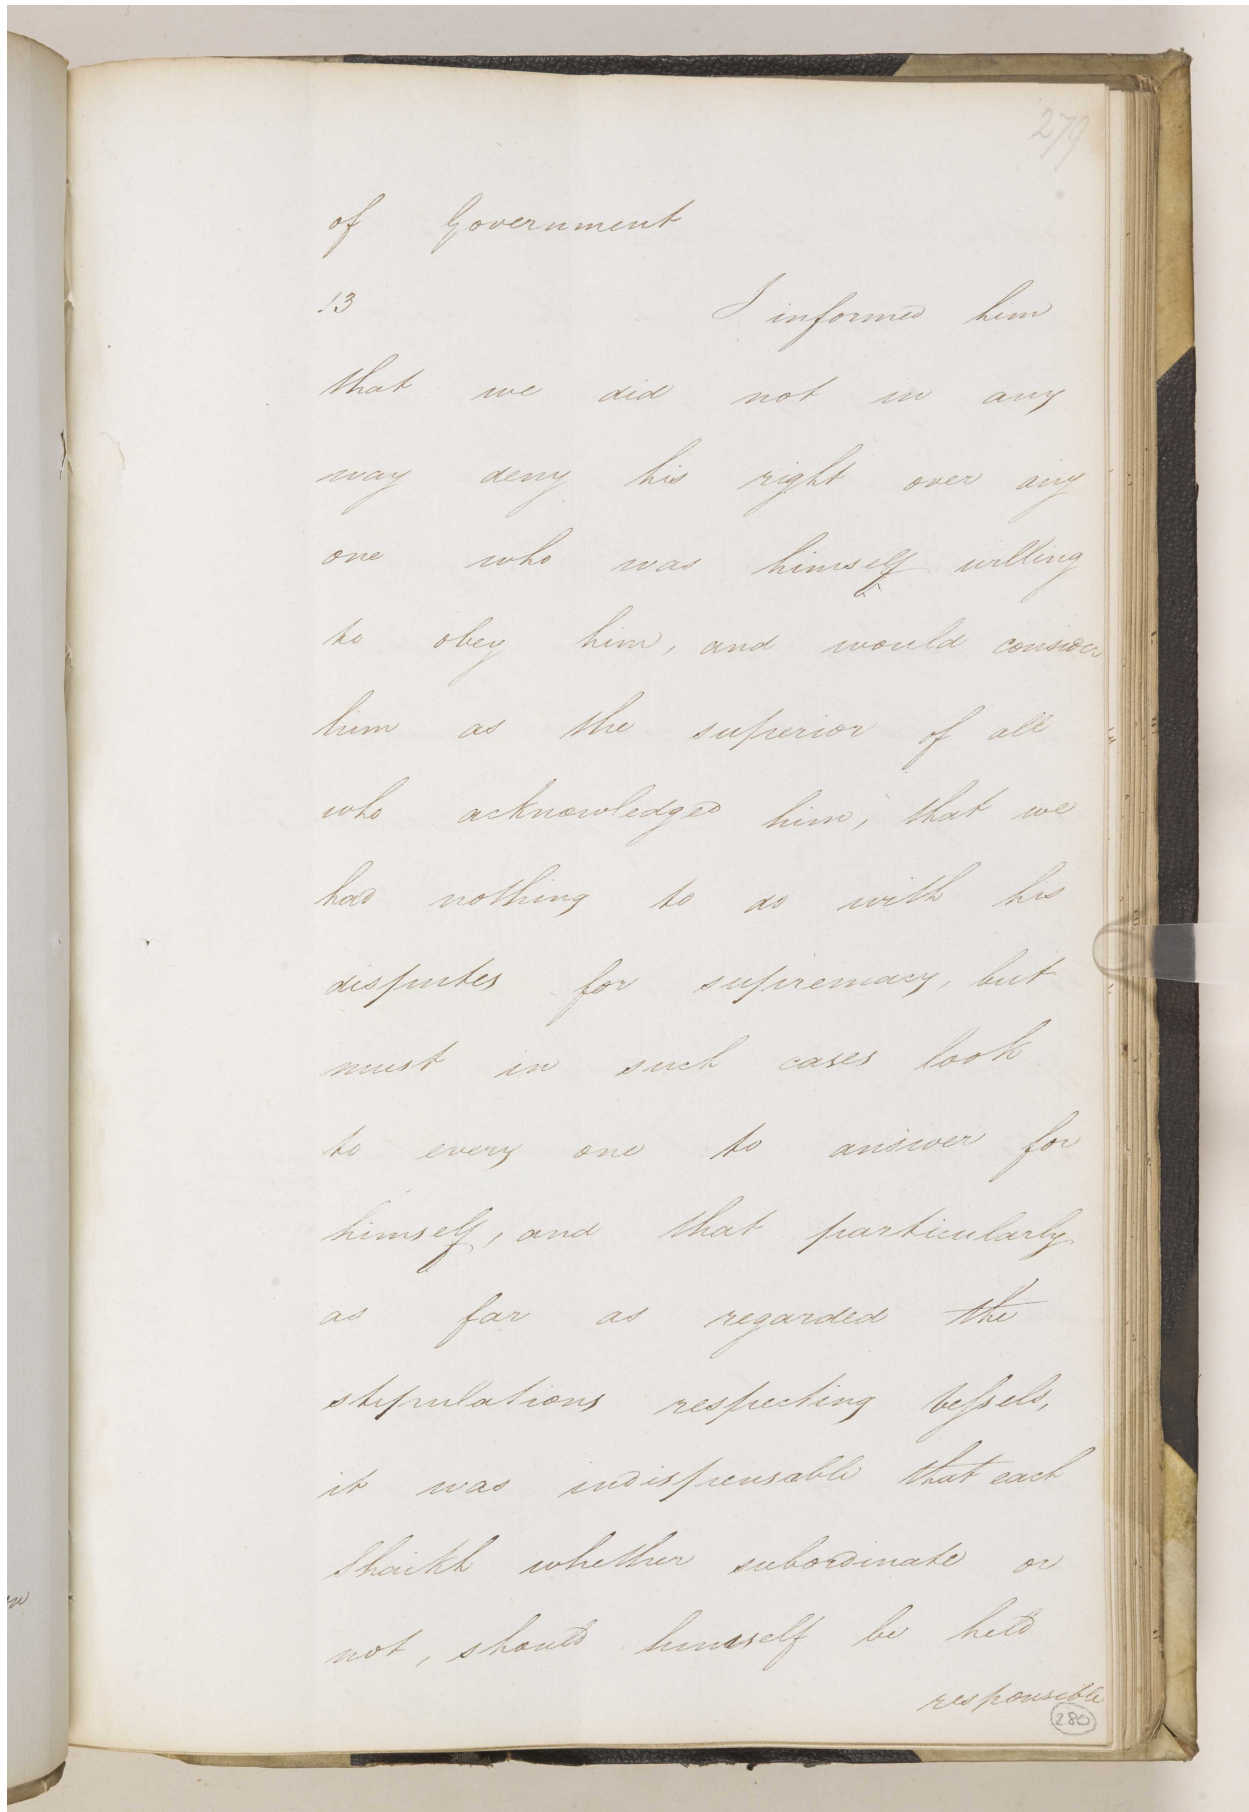 279
of Government
13 I informed him
that we did not in any
way deny his right over any
one who was himself willing
to obey him, and would consider
him as the superior of all
who acknowledged him; that we
had nothing to do with his
disputes for supremacy, but
must in such cases look
to every one to answer for
himself, and that particularly
as far as regarded the
stipulations respecting Vessels,
it was indispensable that each
Shaikh whether subordinate or
not, should himself be held
responsible
280